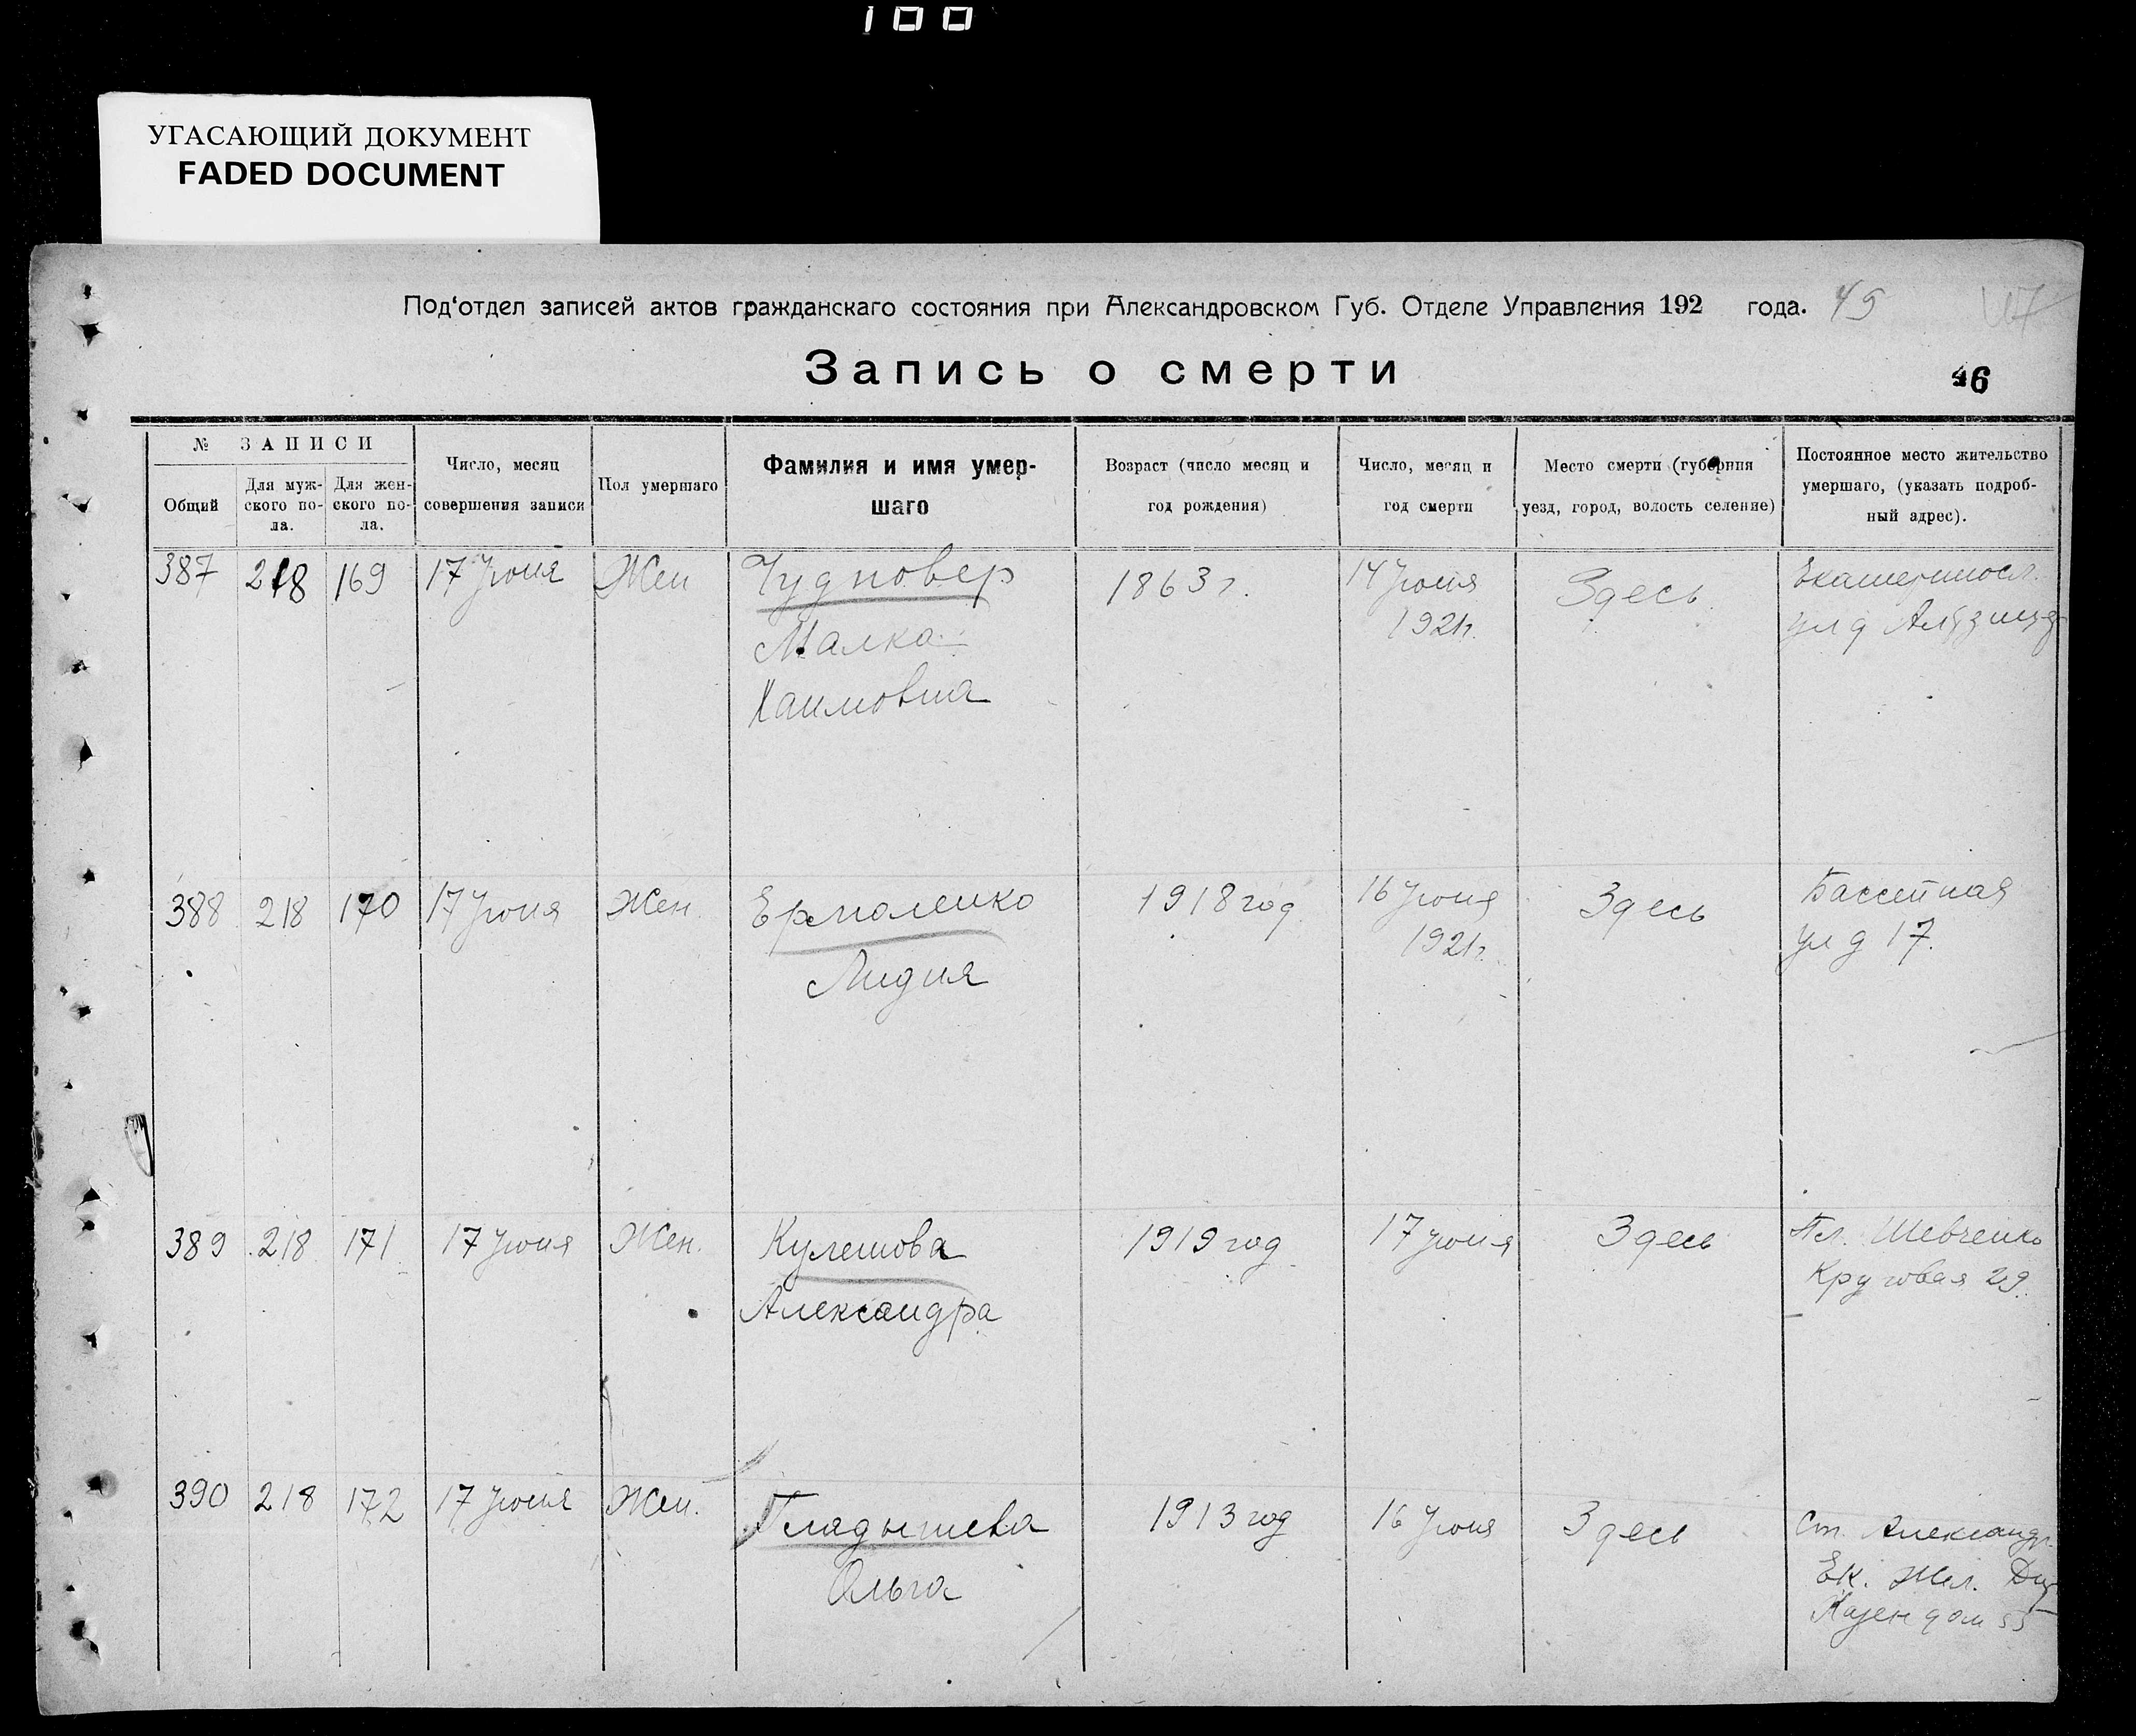 100
УГАСАЮЩИЙ ДОКУМЕНТ
FADED DOCUMENT
Под‘отдел записей актов гражданскаго состояния при Александровском Губ. Отделе Управления 192 года. 45
Запись о смерти
46
№ ЗАПИСИ
Общий
Для муж-
ского по-
ла.
Для жен-
ского по-
ла.
Число, месяц
совершения записи
Пол умершаго
Фамилия и имя умер-
шаго
Возраст (число месяц и
год рождения)
Число, месяц и
год смерти
Место смерти (губерния
уезд, город, волость селение)
Постоянное место жительство
умершаго, (указать подроб-
ный адрес).
387
218
169
17 Июня
Жен
Чудновер
Малка
Хаимовна
1863 г.
14 Июня
1921г.
Здесь
Екатериносл.
ул д
388
218
170
17 Июня
Жен.
Ермоленко
Лидия
1918 год
16 Июня
1921г.
Здесь
Бассейная
ул д 17.
389
218
171
17 Июня
Жен.
Кулешова
Александра
1919 год
17 Июня
Здесь
Пл. Шевченко
Круговая 29.
390
218
172
17 Июня
Жен.
Гладышева
Ольга
1913 год
16 Июня
Здесь
Ст. Александр.
Ек. Жел. Дор
Казен дом 55